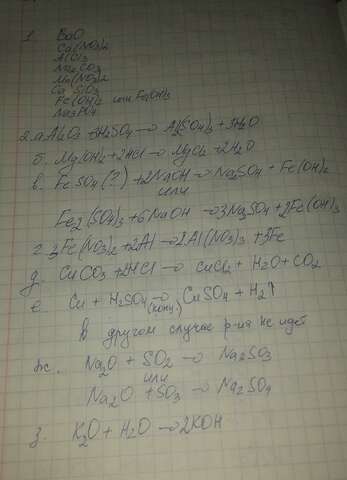 1. BaO
Ca(NO3)2
AlCl3
Na2CO3
Mn(NO3)2
CaSiO3
Fe(OH)2 или Fe(OH)3
Na3PO4
2. а Al2O3 + 3H2SO4 → Al2(SO4)3 + 3H2O
б. Mg(OH)2 + 2HCl → MgCl2 + 2H2O
в. FeSO4(?) + 2NaOH → Na2SO4 + Fe(OH)2
или
Fe2(SO4)3 + 6NaOH → 3Na2SO4 + 2Fe(OH)3
г. 3Fe(NO3)2 + 2Al → 2Al(NO3)3 + 3Fe
д. CuCO3 + 2HCl → CuCl2 + H2O + CO2
е. Cu + H2SO4 (конц.) → CuSO4 + H2↑
в другом случае р-ия не идёт
ж. Na2O + SO2 → Na2SO3
или
Na2O + SO3 → Na2SO4
з. K2O + H2O → 2KOH